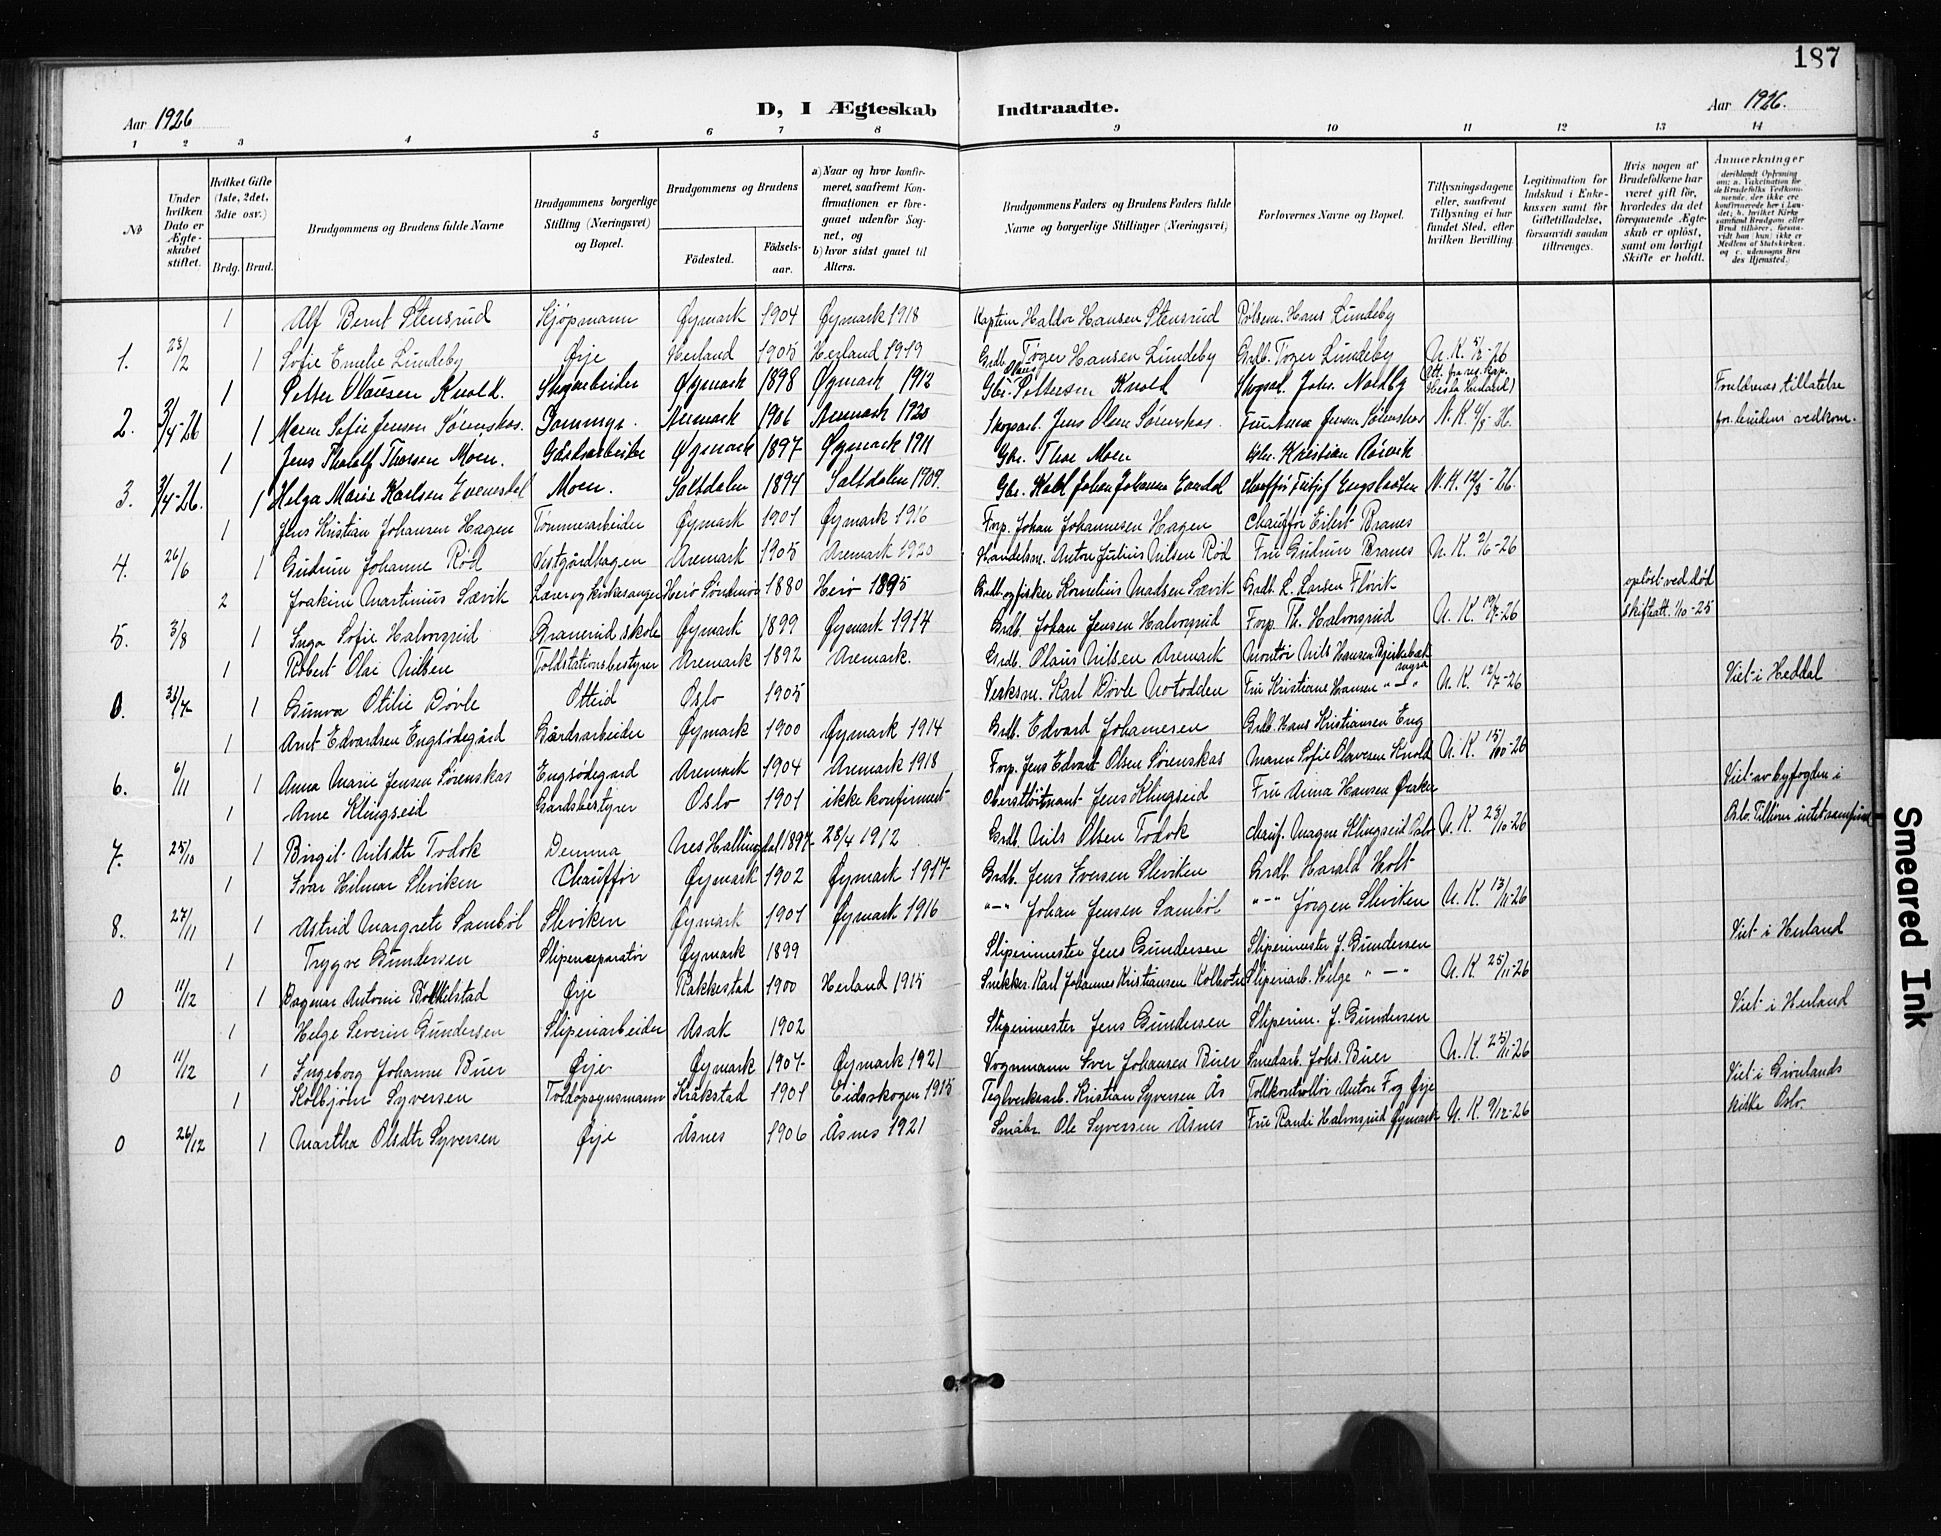 187
Aar 1926
D, I Ægteskab Indtraadte.
Aar 1926.
1 2 3 4 5 6 7 8 9 10 11 12 13 14
№
Under hvilken Dato er Ægteskabet stiftet.
Hvilket Gifte (1ste, 2det, 3die osv.)
Brdg. Brud.
Brudgommens og Brudens fulde Navne
Brudgommens borgerlige Stilling (Næringsvei) og Bopæl.
Brudgommens og Brudens
Födested.
Födselsaar.
a) Naar og hvor konfirmeret, saafremt Konfirmationen er foregaaet udenfor Sognet, og
b) hvor sidst gaaet til Alters.
Brudgommens Faders og Brudens Faders fulde Navne og borgerlige Stillinger (Næringsvei)
Forlovernes Navne og Bopæl.
Tillysningsdagene eller, saafremt Tillysning ei har fundet Sted, efter hvilken Bevilling.
Legitimation for Indskud i Enkekassen samt for Giftetilladelse, forsaavidt saadan tiltrænges.
Hvis nogen af Brudefolkene har været gift før, hvorledes da det foregaaende Ægteskab er opløst, samt om lovligt Skifte er holdt.
Anmærkninger (deriblandt Oplysning om: a. Vakcination for de Brudefolks Vedkommende, der ikke ere konfirmerede her i Landet; b. hvilket Kirkesamfund Brudgom eller Brud tilhører, forsaavidt han (hun) ikke er Medlem af Statskirken, og c. udensogns Brudes Hjemsted.)
1 Alf Bernt Stensrud Kjøpmann Øymark 1904 Øymark 1918 Kaptein Haldor Hansen Stensrud Pølsem. Hans Lundeby
1. 23/2 1 Sofie Emelie Lundeby Ørje Herland 1905 Herland 1919 Grdb. Tøger Hansen Lundeby Grdb. Tøger Lundeby N. K. 5/2-26
1 Petter Olausen Knold. Skogarbeider Øymark 1898 Øymark 1912 Gbr. Olaus Pettersen Knold Skogsarb. Johs. Nordby Att. fra res. kap. Hesla Herland) Foreldrenes tillatelse
2. 3/4-26 1 Maren Sofie Jensen Sørenskas. Aremark 1906 Aremark 1920 Skogsarb. Jens Olsen Sørenskas. Fru Anna Jensen Sørenskas N. K. 4/3-26. for brudens vedkom.
1 Jens Thoralf Thorsen Moen. Gårdsarbeider Øymark 1897 Øymark 1911 Gbr. Thor Moen Gbr. Kristian Rörvik
3. 3/4-26. 1 Helga Marie Karlsen Evenesdal Moen. Saltdalen 1894 Saltdalen 1909. Gbr. Karl Johan Johansen N. K. 12/3-26.
1 Jens Kristian Johansen Hagen Tømmerarbeider Øymark 1901 Øymark 1916 Forp. Johan Johannesen Hagen Chauffør Eilert Branes
4. 26/6 1 Gudrun Johanne Rød Vestgårdhagen Aremark 1905 Aremark 1920 Handelsm. Anton Julius Nilsen Rød Fru Gudrun Branes N. K. 2/6-26
2 Joakim Martinius Sævik Lærer og kirkesanger Herö Søndmör 1880 Herö 1895 Grdb. og fisker Kornelius Madsen Sævik Grdb. L. Larsen Fløvik opløst ved død
5. 3/8 1 Inga Sofie Halvorsrud Branerud skole Øymark 1899 Øymark 1914 Grdb. Johan Jensen Halvorsrud Forp. Th. Halvorsrud N. K. 19/7-26 skifteatt. 1/10-25
1 Robert Olai Nilsen Toldstationsbestyrer Aremark 1892 Aremark. Grdb. Olaus Nilsen Aremark Montör Nils Hansen Bjerkebæk
0. 31/7 1 Gunva Otilie Døvle Otteid Oslo 1905 Verksm. Karl Døvle Notodden Fru Kristiane Hansen "—" N. K. 12/7-26 Viet i Heddal
1 Arnt Edvardsen Engsødegård Gårdsarbeider Øymark 1900 Øymark 1914 Grdb. Edvard Johannesen Grdb. Hans Kristiansen Eng
6. 6/11 1 Anna Marie Jensen Sørenskas Engsødegård Aremark 1904 Aremark 1918 Forp. Jens Edvart Olsen Sørenskas Maren Sofie Olavesen Knold N. K. 15/10-26
1 Arne Klingseid Gårdsbestyrer Oslo 1901 ikke konfirmert Oberstløitnant Jens Klingseid Fru Anna Hansen Viet av byfogden i
7. 25/10 1 Birgit Nilsdtr Todok Demma Nes Hallingdal 1897 28/4 1912 Grdb. Nils Olsen Todok Chauf. Magne Klingseid Oslo N. K. 23/10-26 Oslo. Tilhører intet samfund
1 Ivar Hilmar Sleviken Chauffør Øymark 1902 Øymark 1917 Grdb. Jens Iversen Sleviken Grdb. Harald Holt
8. 27/11 1 Astrid Margrete Sambøl Sleviken Øymark 1901 Øymark 1916 "—" Johan Jensen Sambøl "—" Jørgen Sleviken N. K. 13/11-26
1 Trygve Gundersen Øymark 1899 Sliperimester Jens Gundersen Sliperimester J. Gundersen Viet i Herland
0 11/12 1 Dagmar Antonie Ørje Rakkestad 1900 Herland 1915 Snekker Karl Johannes Kristiansen Kolbotn Sliperiarb. Helge "—" N. K. 25/11-26
1 Helge Severin Gundersen Sliperiarbeider Asak 1902 Sliperimester Jens Gundersen Sliperim. J. Gundersen Viet i Herland
0 11/12 1 Ingeborg Johanne Buer Ørje Øymark 1907 Øymark 1921 Vognmann Iver Johansen Buer Smedarb. Johs. Buer N. K. 25/11-26
1 Kolbjørn Syversen Toldopsynsmann Kråkstad 1901 Eidsskogen 1915 Teglverksarb. Kristian Syversen Ås Tollkontrollør Anton Fog Ørje Viet i Grønlands
0 26/12 1 Martha Olsdtr Syversen Ørje Åsnes 1906 Åsnes 1921 Småbr. Ole Syversen Åsnes Fru Randi Halvorsrud Øymark N. K. 9/12-26 kirke Oslo.
Smeared Ink